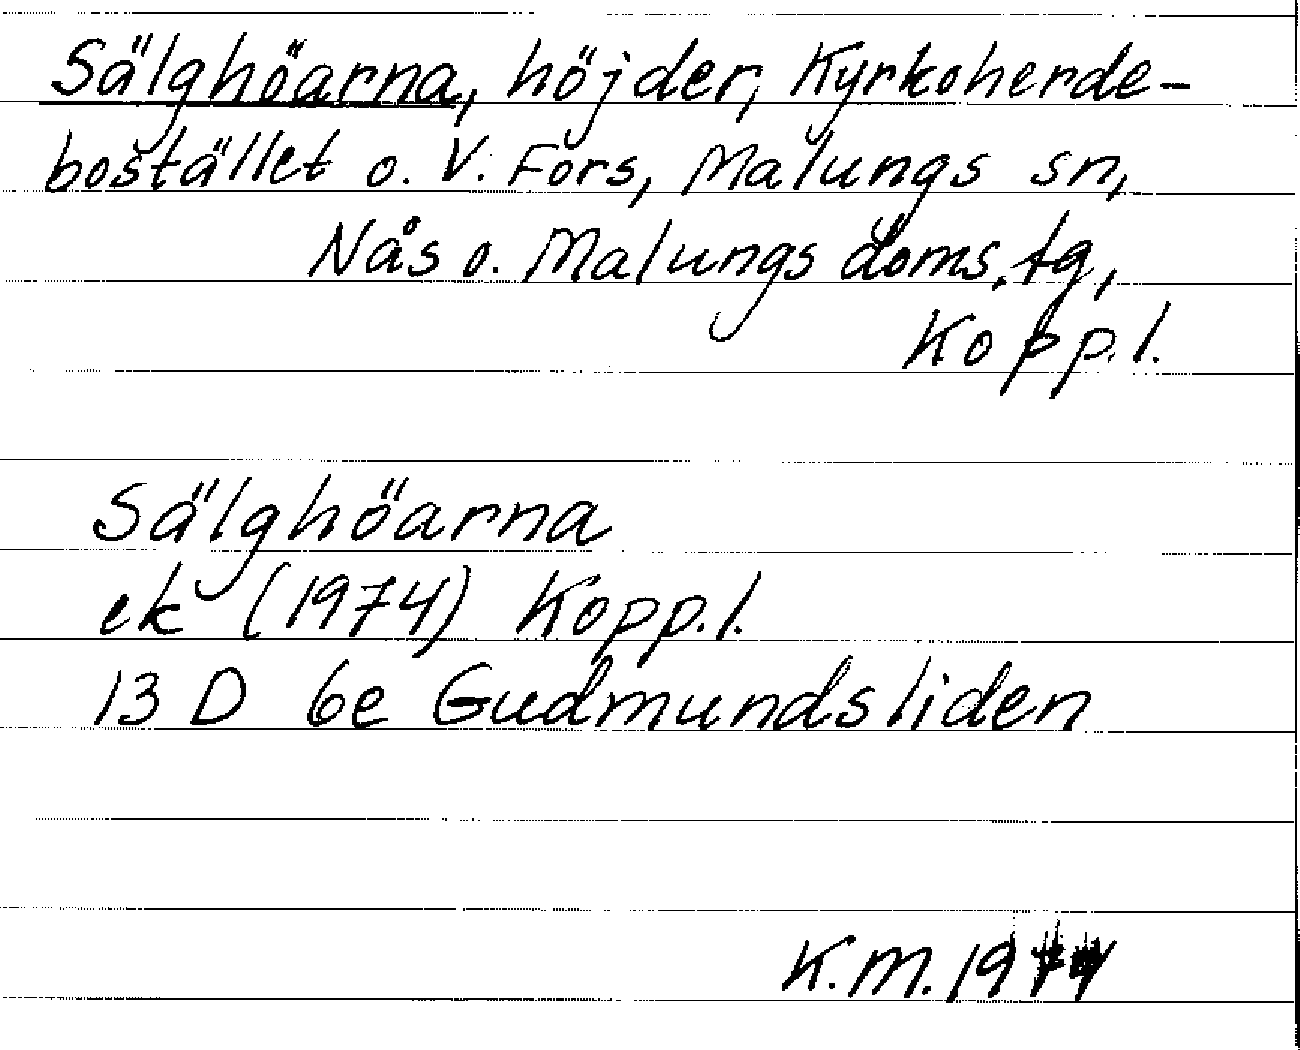 Sälghöarna, höjder, Kyrkoherde-
bostället o. V. Fors, Malungs sn,
Nås o. Malungs doms. tg,
Kopp. l.
Sälghöarna
ek (1974) Kopp. l.
13 D 6e Gudmundsliden
K.M. 19